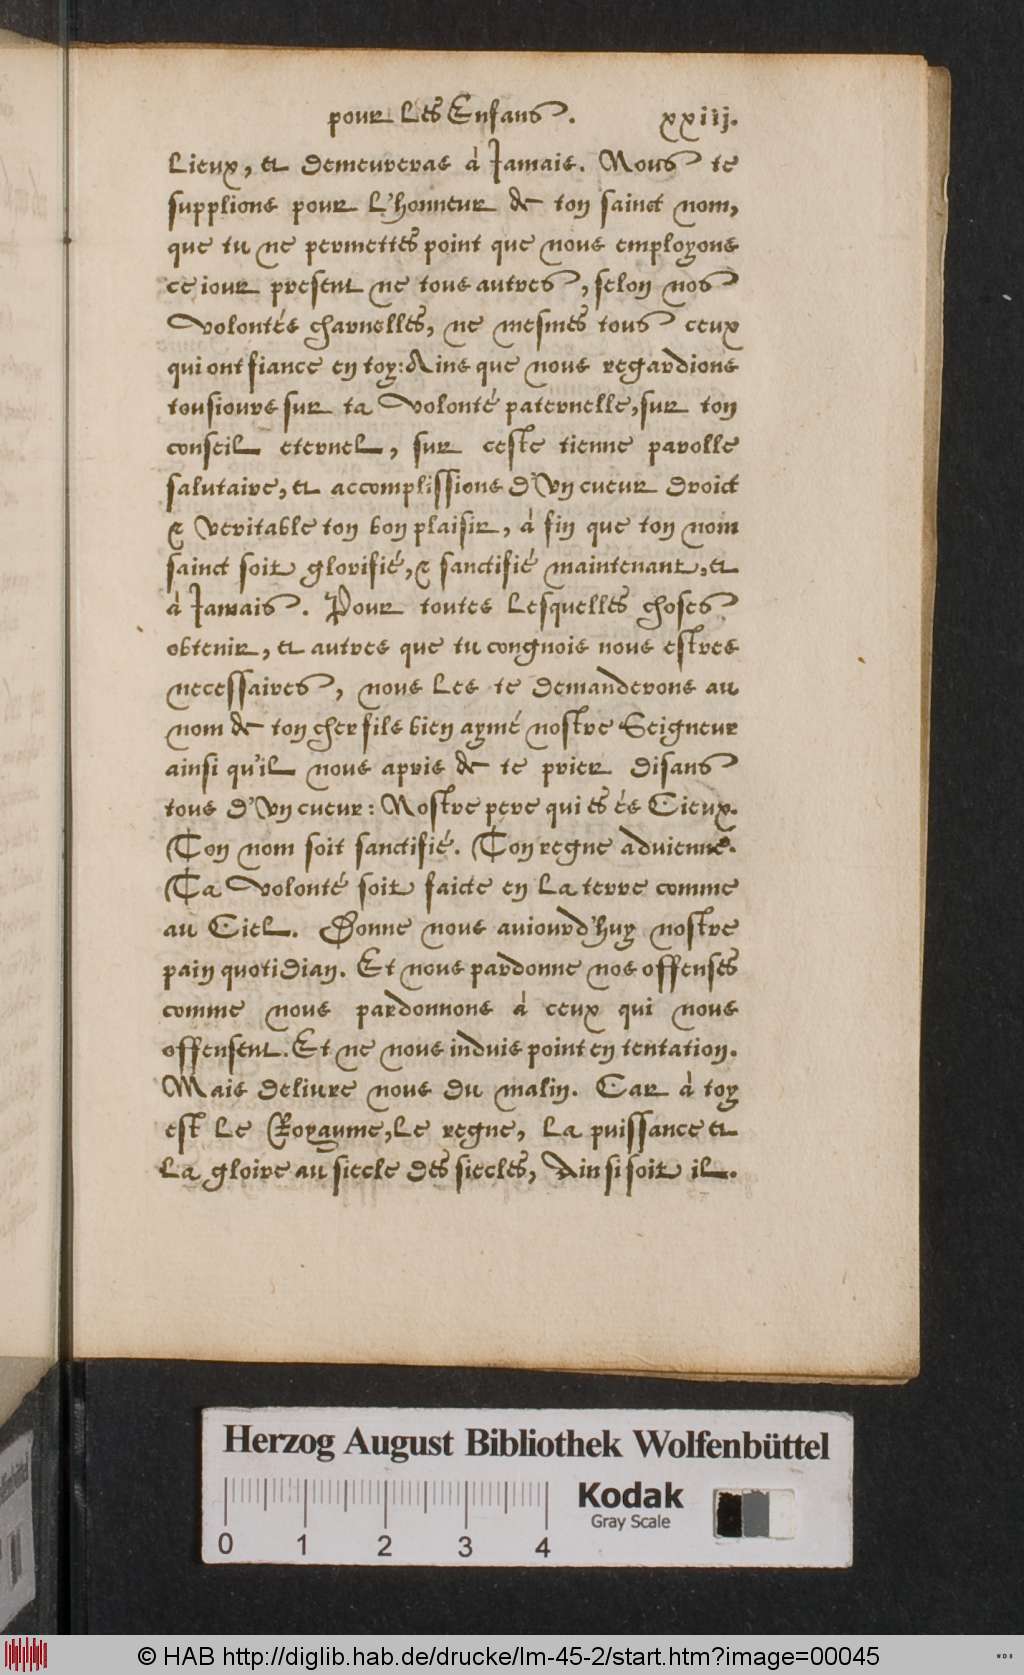 pour les Enfans. xxiij.
lieux, et demeureras à Jamais. Nous te
supplions pour l'honneur de ton sainct nom,
que tu ne permettes point que nous employons
ce iour present ne tous autres, selon nos
volontés charnelles, ne mesmes tous ceux
qui ont fiance en toy: Ains que nous regardions
tousiours sur ta volonté paternelle, sur ton
conseil eternel, sur ceste tienne parolle
salutaire, et accomplissions d'vn cueur droict
& veritable ton bon plaisir, à fin que ton nom
sainct soit glorifié, & sanctifié maintenant, et
à Jamais. Pour toutes lesquelles choses
obtenir, et autres que tu congnois nous estres
necessaires, nous les te demanderons au
nom de ton cher fils bien aymé nostre Seigneur
ainsi qu'il nous apris de te prier disans
tous d'vn cueur: Nostre pere qui es és Cieux.
Ton nom soit sanctifié. Ton regne aduienne.
Ta volonté soit faicte en la terre comme
au Ciel. Donne nous auiourd'huy nostre
pain quotidian. Et nous pardonne nos offenses
comme nous pardonnons à ceux qui nous
offensent. Et ne nous induis point en tentation.
Mais deliure nous du malin. Car à toy
est le Royaume, le regne, la puissance et
la gloire au siecle des siecles, Ainsi soit il.
Herzog August Bibliothek Wolfenbüttel
Kodak
Gray Scale
0 1 2 3 4
© HAB http://diglib.hab.de/drucke/lm-45-2/start.htm?image=00045